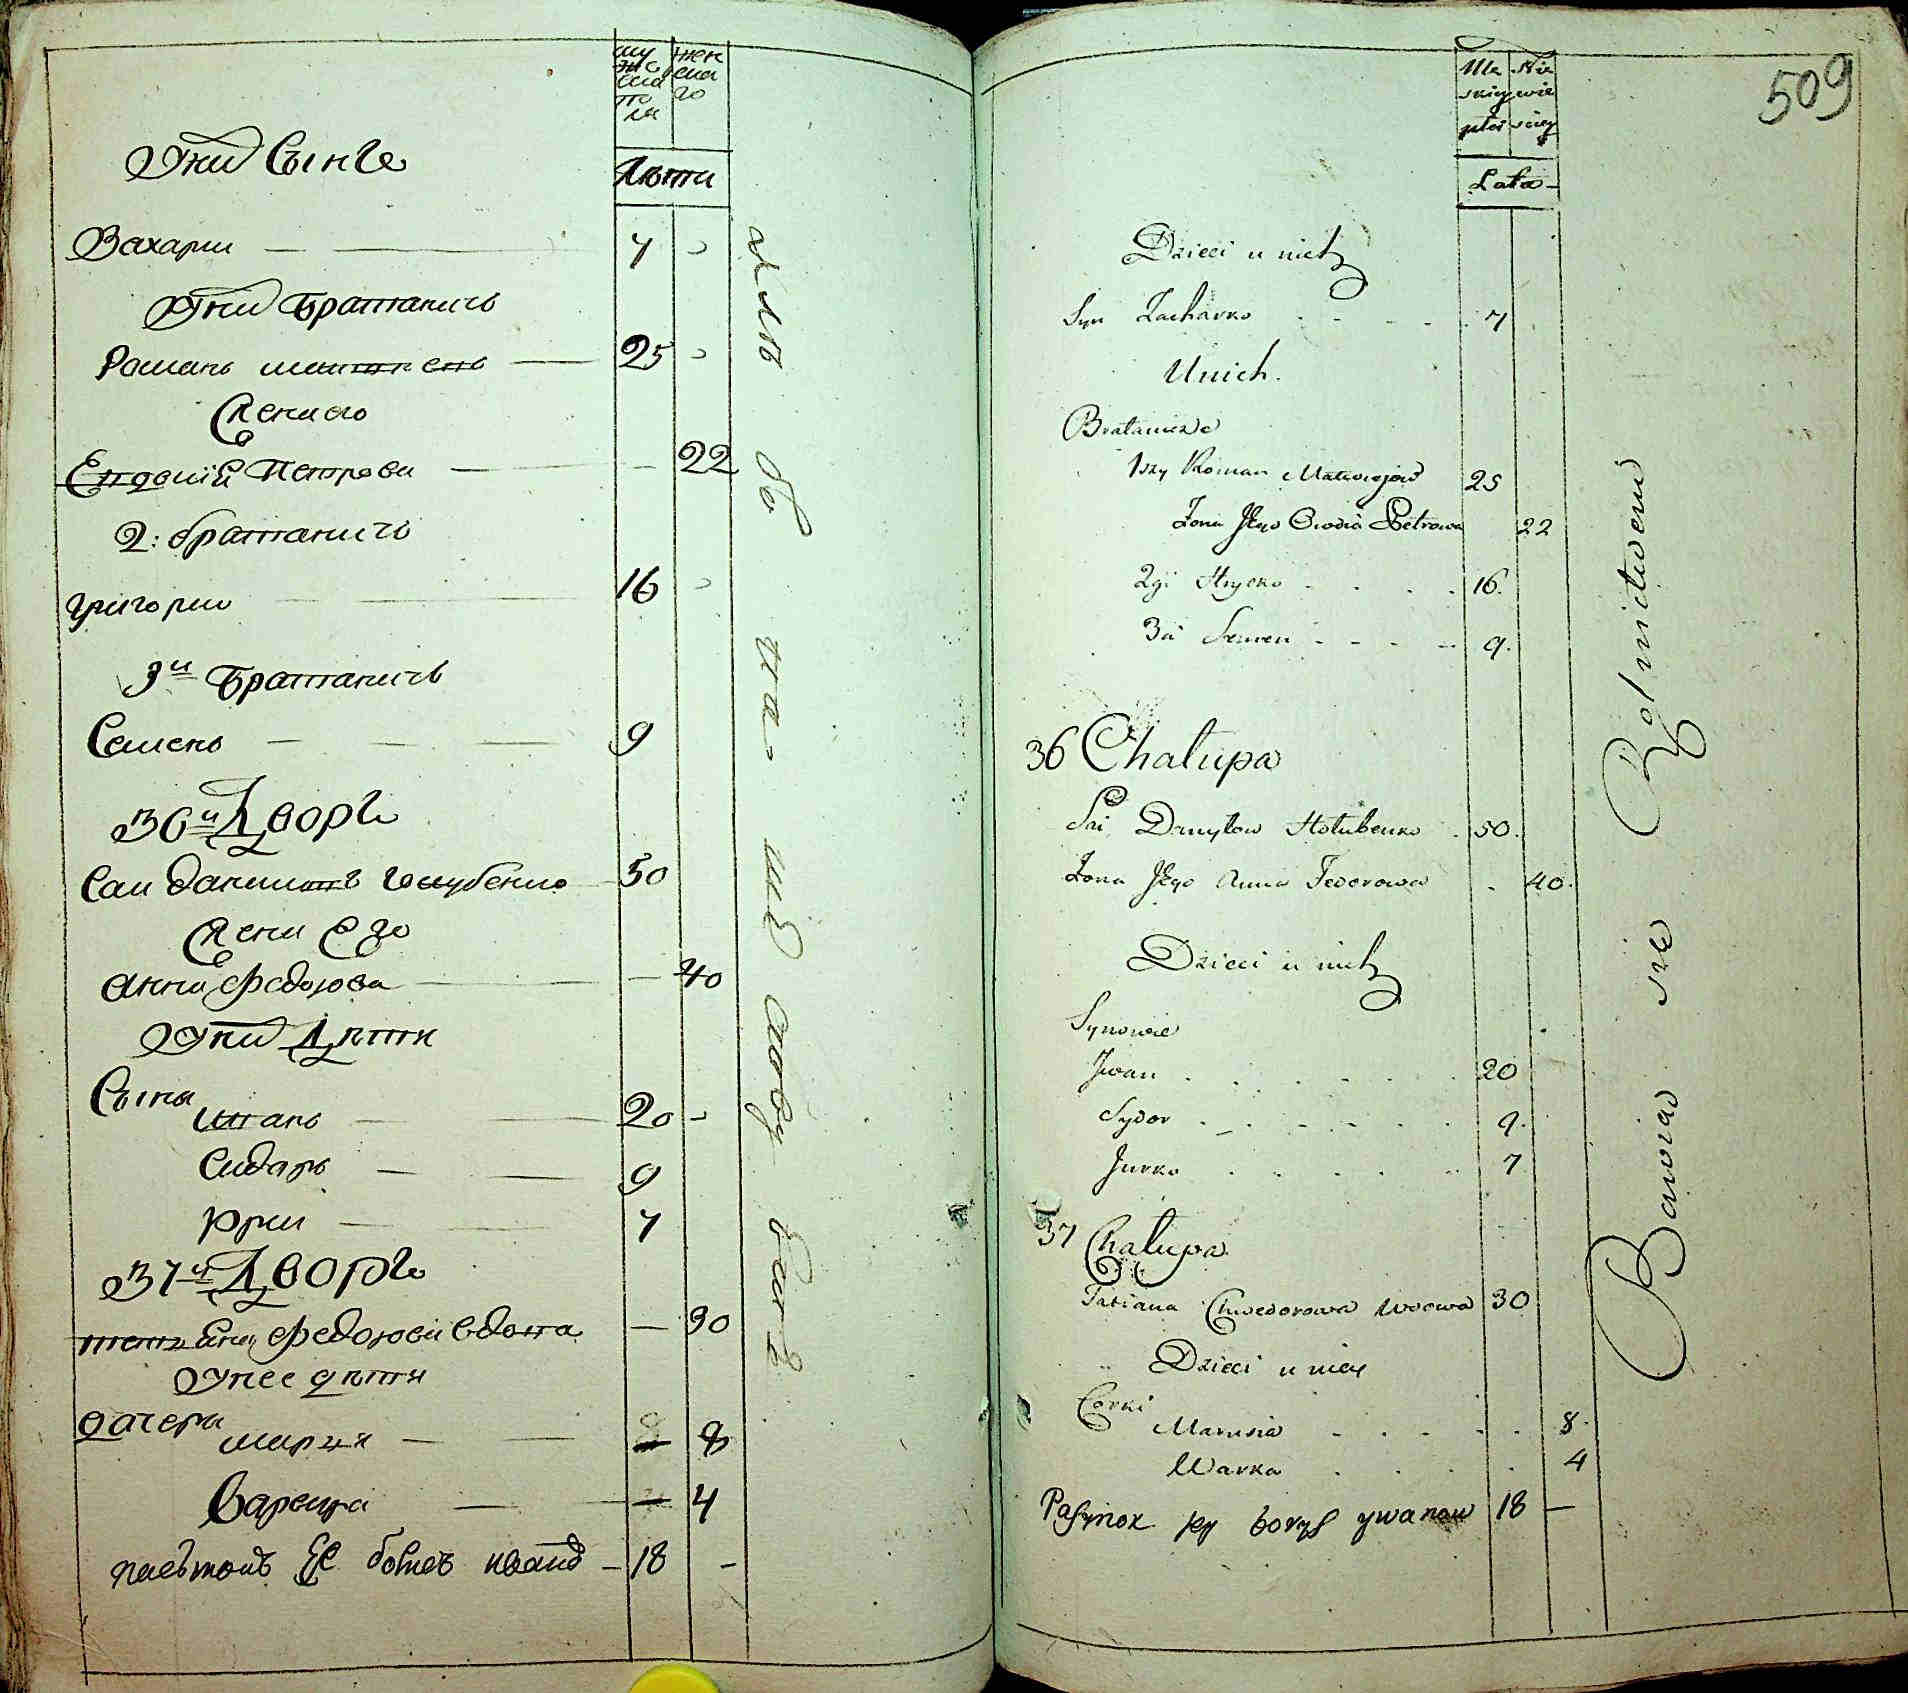 мужеска поля
женскаго
Лѣты
Униὓ Сынъ
Захарии 7
Униὓ братаничъ
Романъ матвѣевъ 25
Жена его
Евдокия Петрова 22
2: братаничъ
григории 16
3й братаничъ
Семенъ 9
36й Дворъ
Сам данило голубенко 50
Жена Его
Анна федорова 40
Уних Дѣти
Сыны
Иванъ 20
Сидаръ 9
Юрии 7
37й Дворъ
татияна федорова вдова 30
Унее дѣти
дачери
марья 8
Варвара 4
пасынокъ Ее борисъ иванов 18
Męskiey płci
Niewieściey
Lata
509
Dzieci u nich
Syn Zacharko 7
U nich
Bratanicze
1szy Roman Matwiejow 25
Żona Jego Owdia Petrowa 22
2gi Hryćko 16
3ci Semen 9
36 Chałupa
Sam Danyło Hołubenko 50
Żona Jego Anna Fedorowa 40
Dzieci u nich
Synowie
Jwan 20
Sydor 9
Jurko 7
37 Chałupa
Tatiana Chwedorowa Wdowa 30
Dzieci u niey
Corki
Marusia 8
Warka 4
Pasynok jey borys ywanow 18
Bawią się Rolnictwem